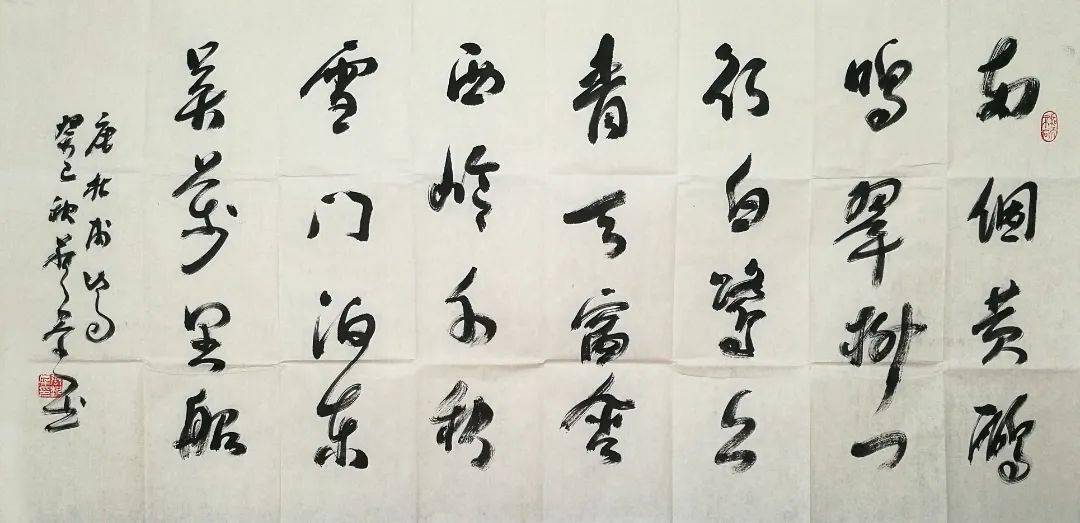 两個黄鹂
鸣翠柳一
行白鹭上
青天窗含
西岭千秋
雪门泊东
吴萬里船
唐杜甫诗
癸巳秋 书